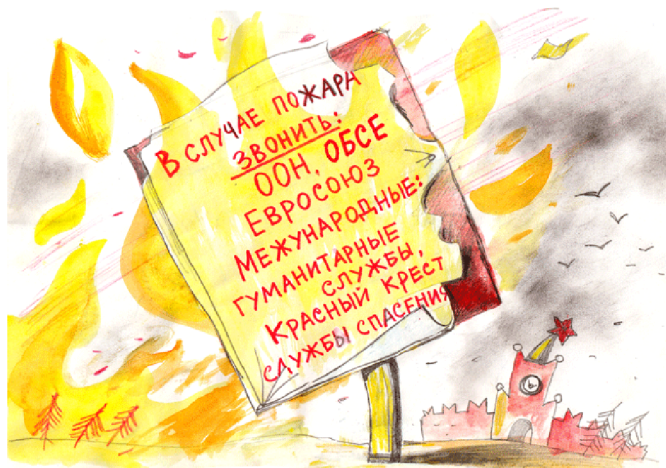 В СЛУЧАЕ ПОЖАРА
ЗВОНИТЬ:
ООН, ОБСЕ
ЕВРОСОЮЗ
МЕЖУНАРОДНЫЕ:
ГУМАНИТАРНЫЕ
СЛУЖБЫ,
КРАСНЫЙ КРЕСТ
СЛУЖБЫ СПАСЕНИЯ